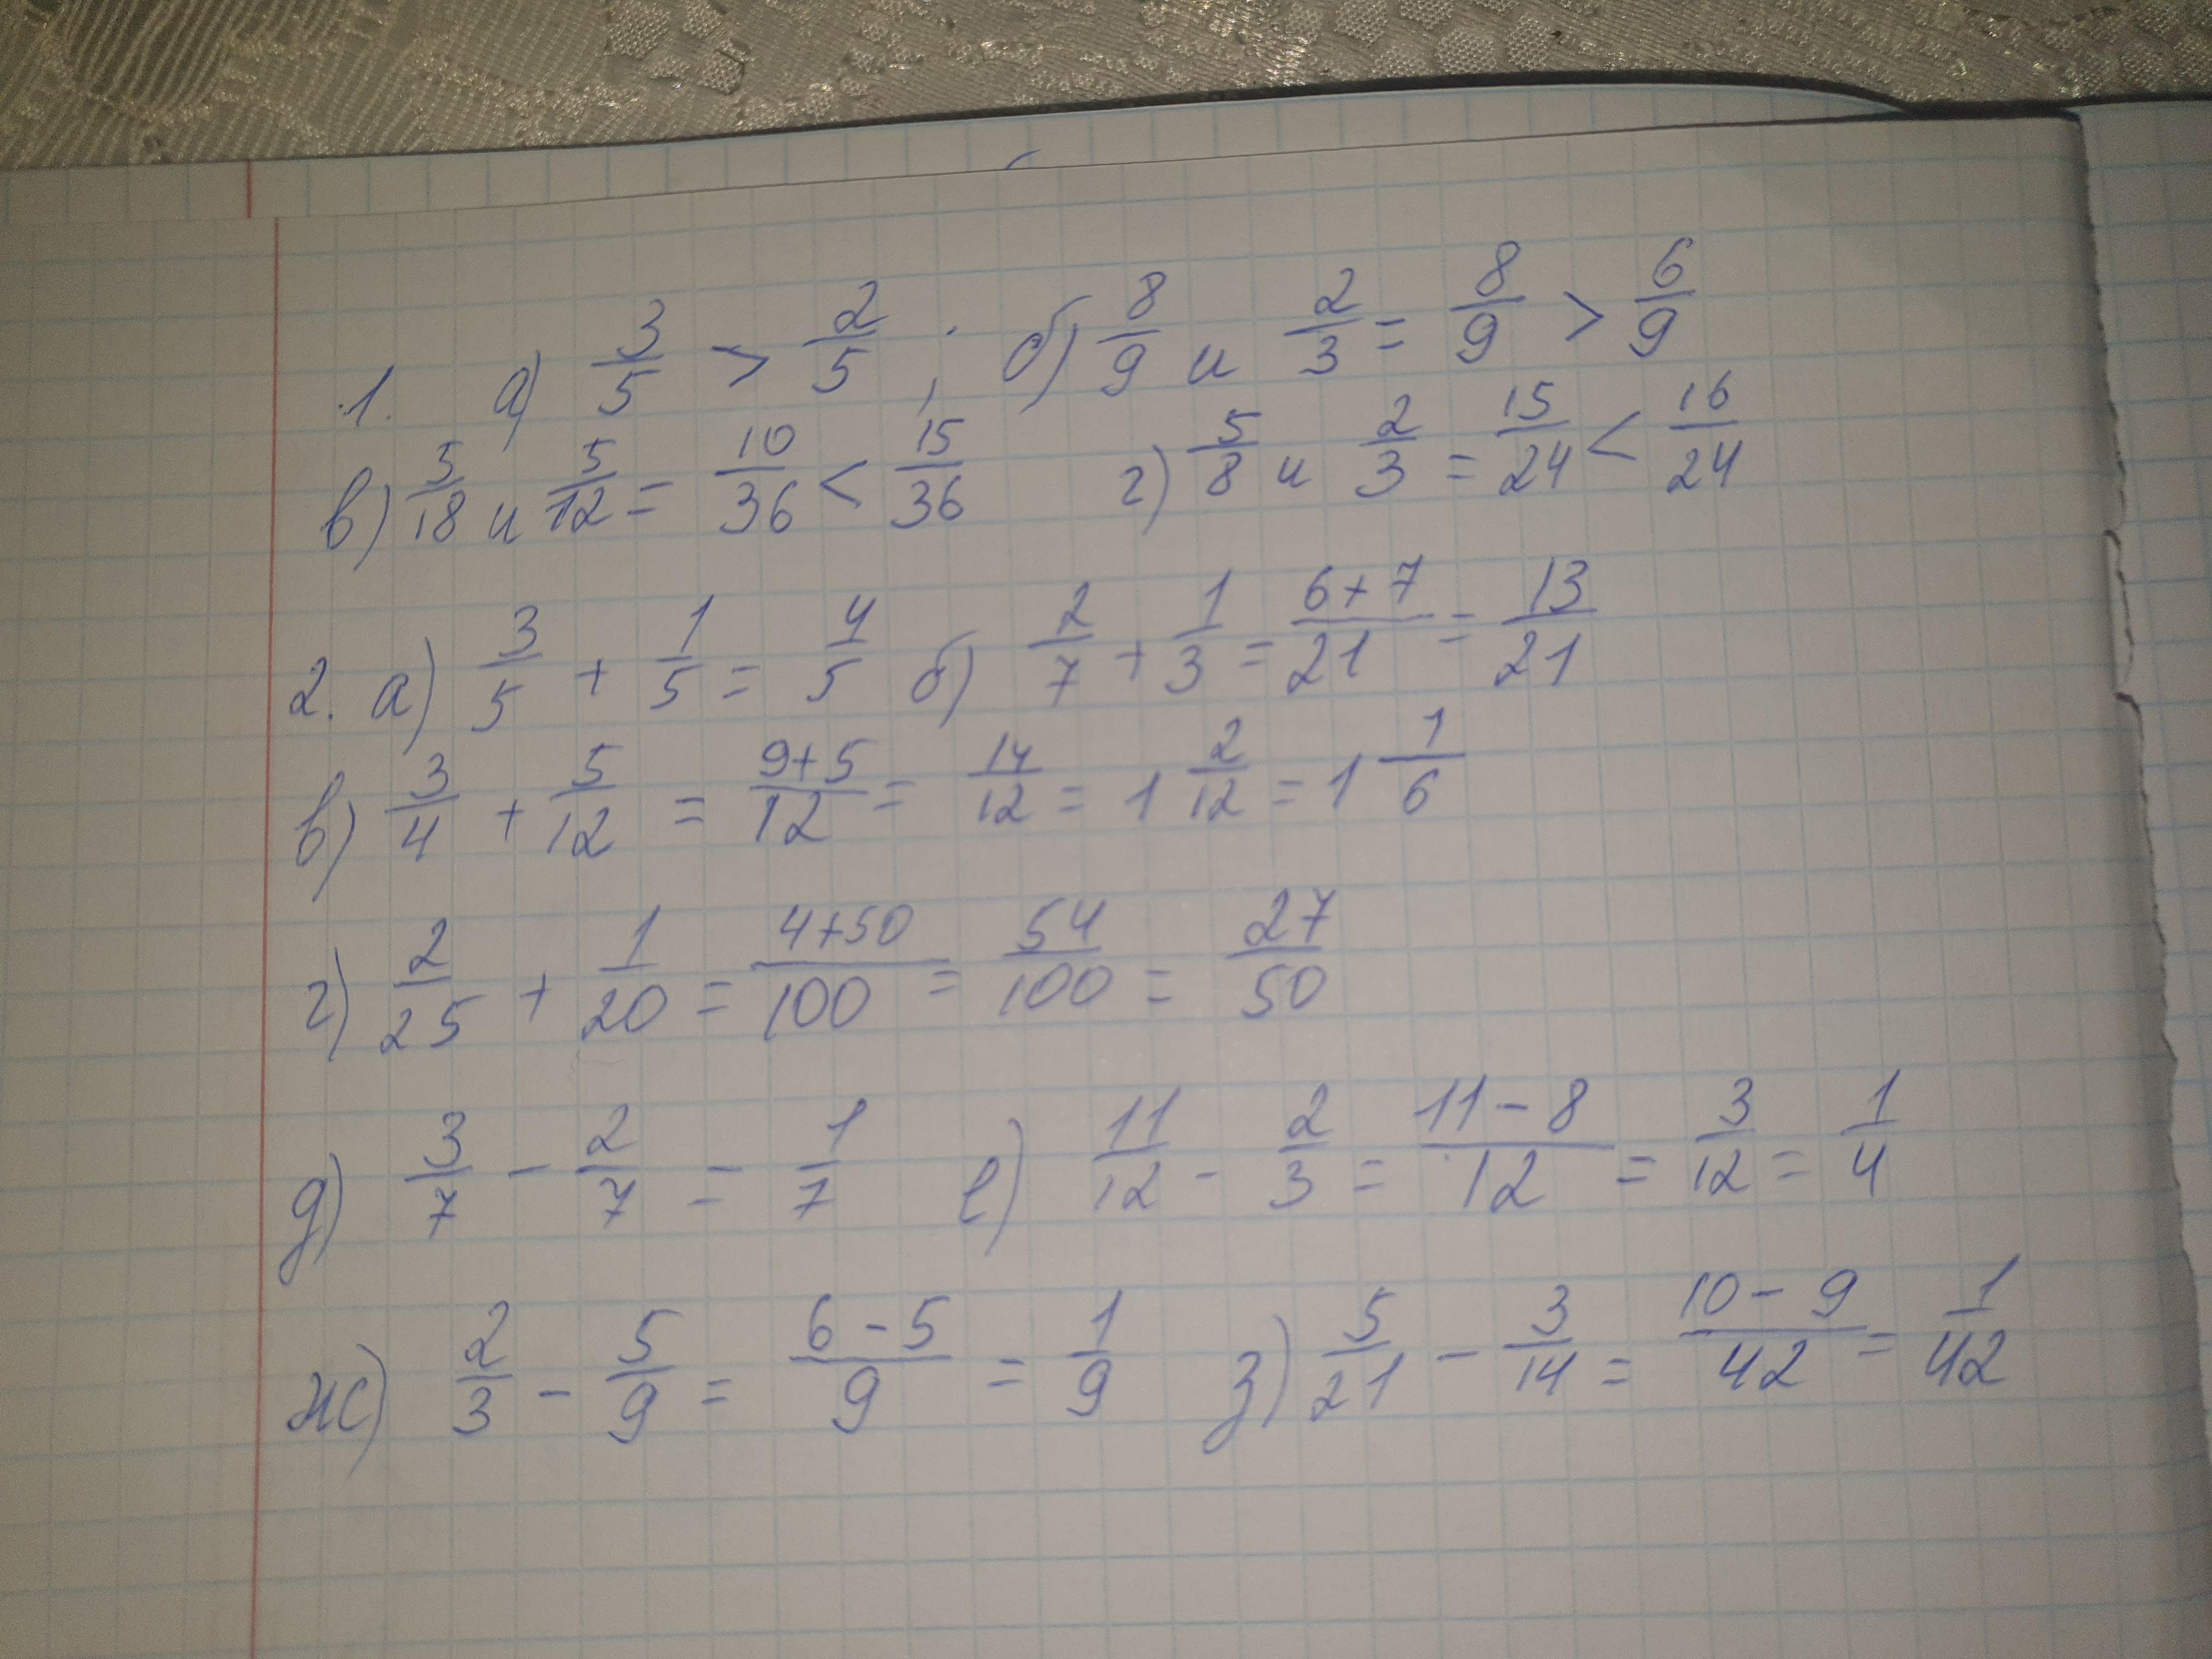 1. а) 3/5 > 2/5 ; б) 8/9 и 2/3 = 8/9 > 6/9
в) 5/18 и 5/12 = 10/36 < 15/36 г) 5/8 и 2/3 = 15/24 < 16/24
2. а) 3/5 + 1/5 = 4/5 б) 2/7 + 1/3 = 6+7/21 = 13/21
в) 3/4 + 5/12 = 9+5/12 = 14/12 = 1 2/12 = 1 1/6
г) 2/25 + 1/20 = 4+50/100 = 54/100 = 27/50
д) 3/7 - 2/7 = 1/7 е) 11/12 - 2/3 = 11-8/12 = 3/12 = 1/4
ж) 2/3 - 5/9 = 6-5/9 = 1/9 з) 5/21 - 3/14 = 10-9/42 = 1/42